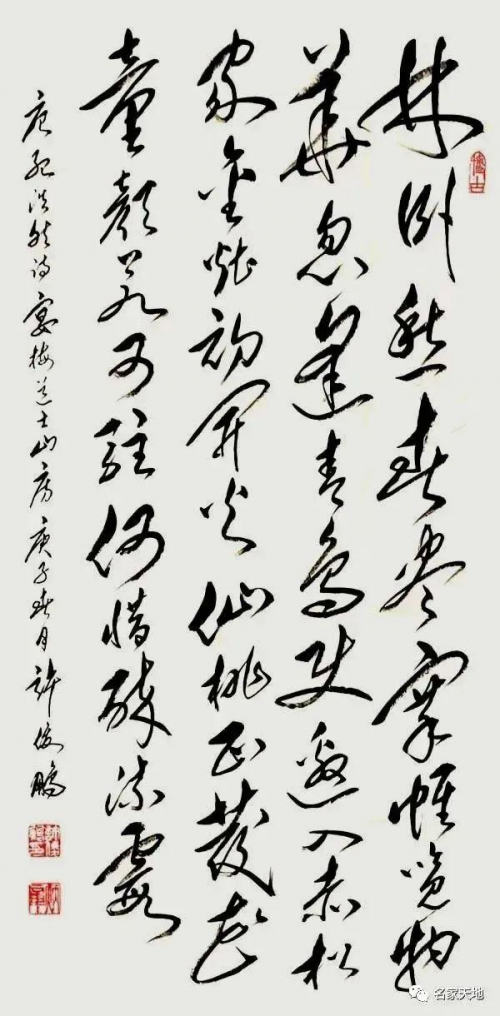 林卧愁春尽搴帷览物
華忽逢青鸟使邀入赤松
家金灶初开火仙桃正發花
童颜若可驻何惜醉流霞
唐孟浩然诗宴梅道士山房庚子春月许俊鹏
名家天地